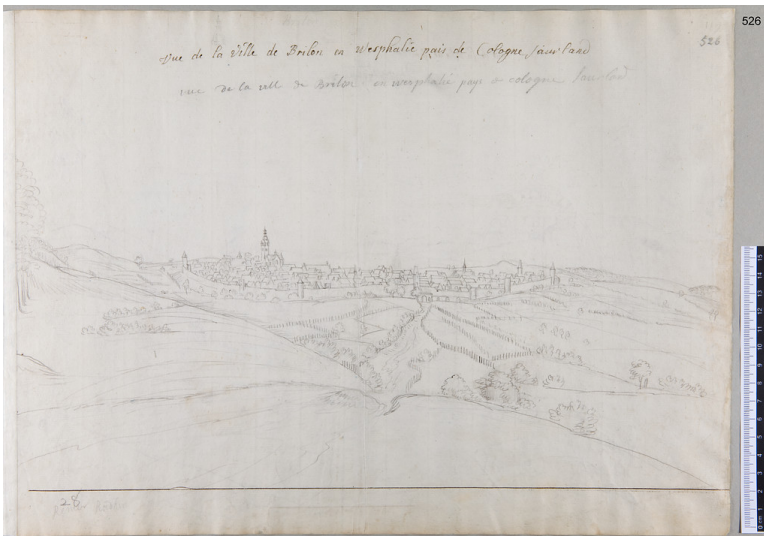 526
526
Vue de la Ville de Brilon en Wesphalie païs de Cologne Saurland
vue de la vill de Brilon en wesphalie pays de cologne Saurland
28
15
14
13
12
11
10
9
8
7
6
5
4
3
2
1
0 cm